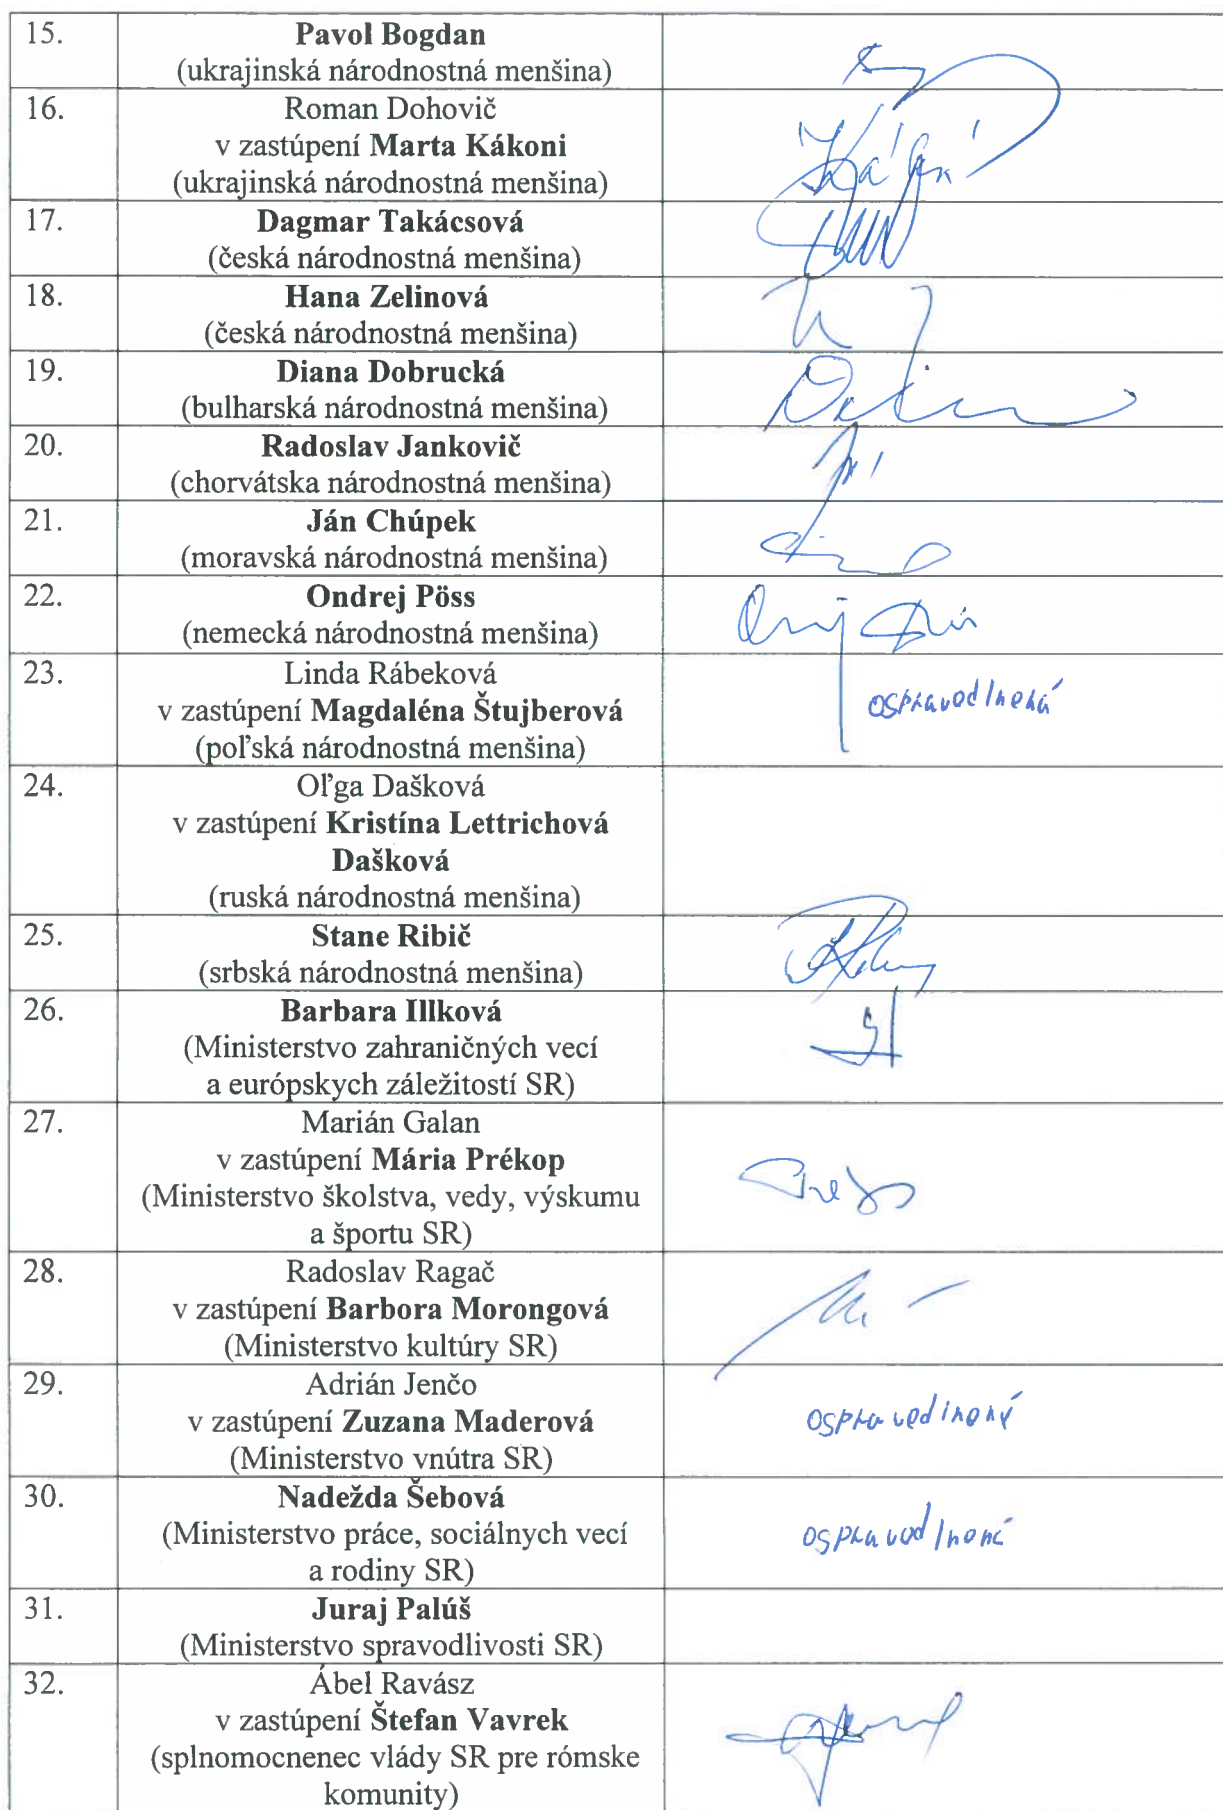 15.
Pavol Bogdan
(ukrajinská národnostná menšina)
16.
Roman Dohovič
v zastúpení Marta Kákoni
(ukrajinská národnostná menšina)
17.
Dagmar Takácsová
(česká národnostná menšina)
18.
Hana Zelinová
(česká národnostná menšina)
19.
Diana Dobrucká
(bulharská národnostná menšina)
20.
Radoslav Jankovič
(chorvátska národnostná menšina)
21.
Ján Chúpek
(moravská národnostná menšina)
22.
Ondrej Pöss
(nemecká národnostná menšina)
23.
Linda Rábeková
v zastúpení Magdaléna Štujberová
(poľská národnostná menšina)
ospravedlnená
24.
Oľga Dašková
v zastúpení Kristína Lettrichová
Dašková
(ruská národnostná menšina)
25.
Stane Ribič
(srbská národnostná menšina)
26.
Barbara Illková
(Ministerstvo zahraničných vecí
a európskych záležitostí SR)
27.
Marián Galan
v zastúpení Mária Prékop
(Ministerstvo školstva, vedy, výskumu
a športu SR)
28.
Radoslav Ragač
v zastúpení Barbora Morongová
(Ministerstvo kultúry SR)
29.
Adrián Jenčo
v zastúpení Zuzana Maderová
(Ministerstvo vnútra SR)
ospravedlnený
30.
Nadežda Šebová
(Ministerstvo práce, sociálnych vecí
a rodiny SR)
ospravedlnená
31.
Juraj Palúš
(Ministerstvo spravodlivosti SR)
32.
Ábel Ravász
v zastúpení Štefan Vavrek
(splnomocnenec vlády SR pre rómske
komunity)